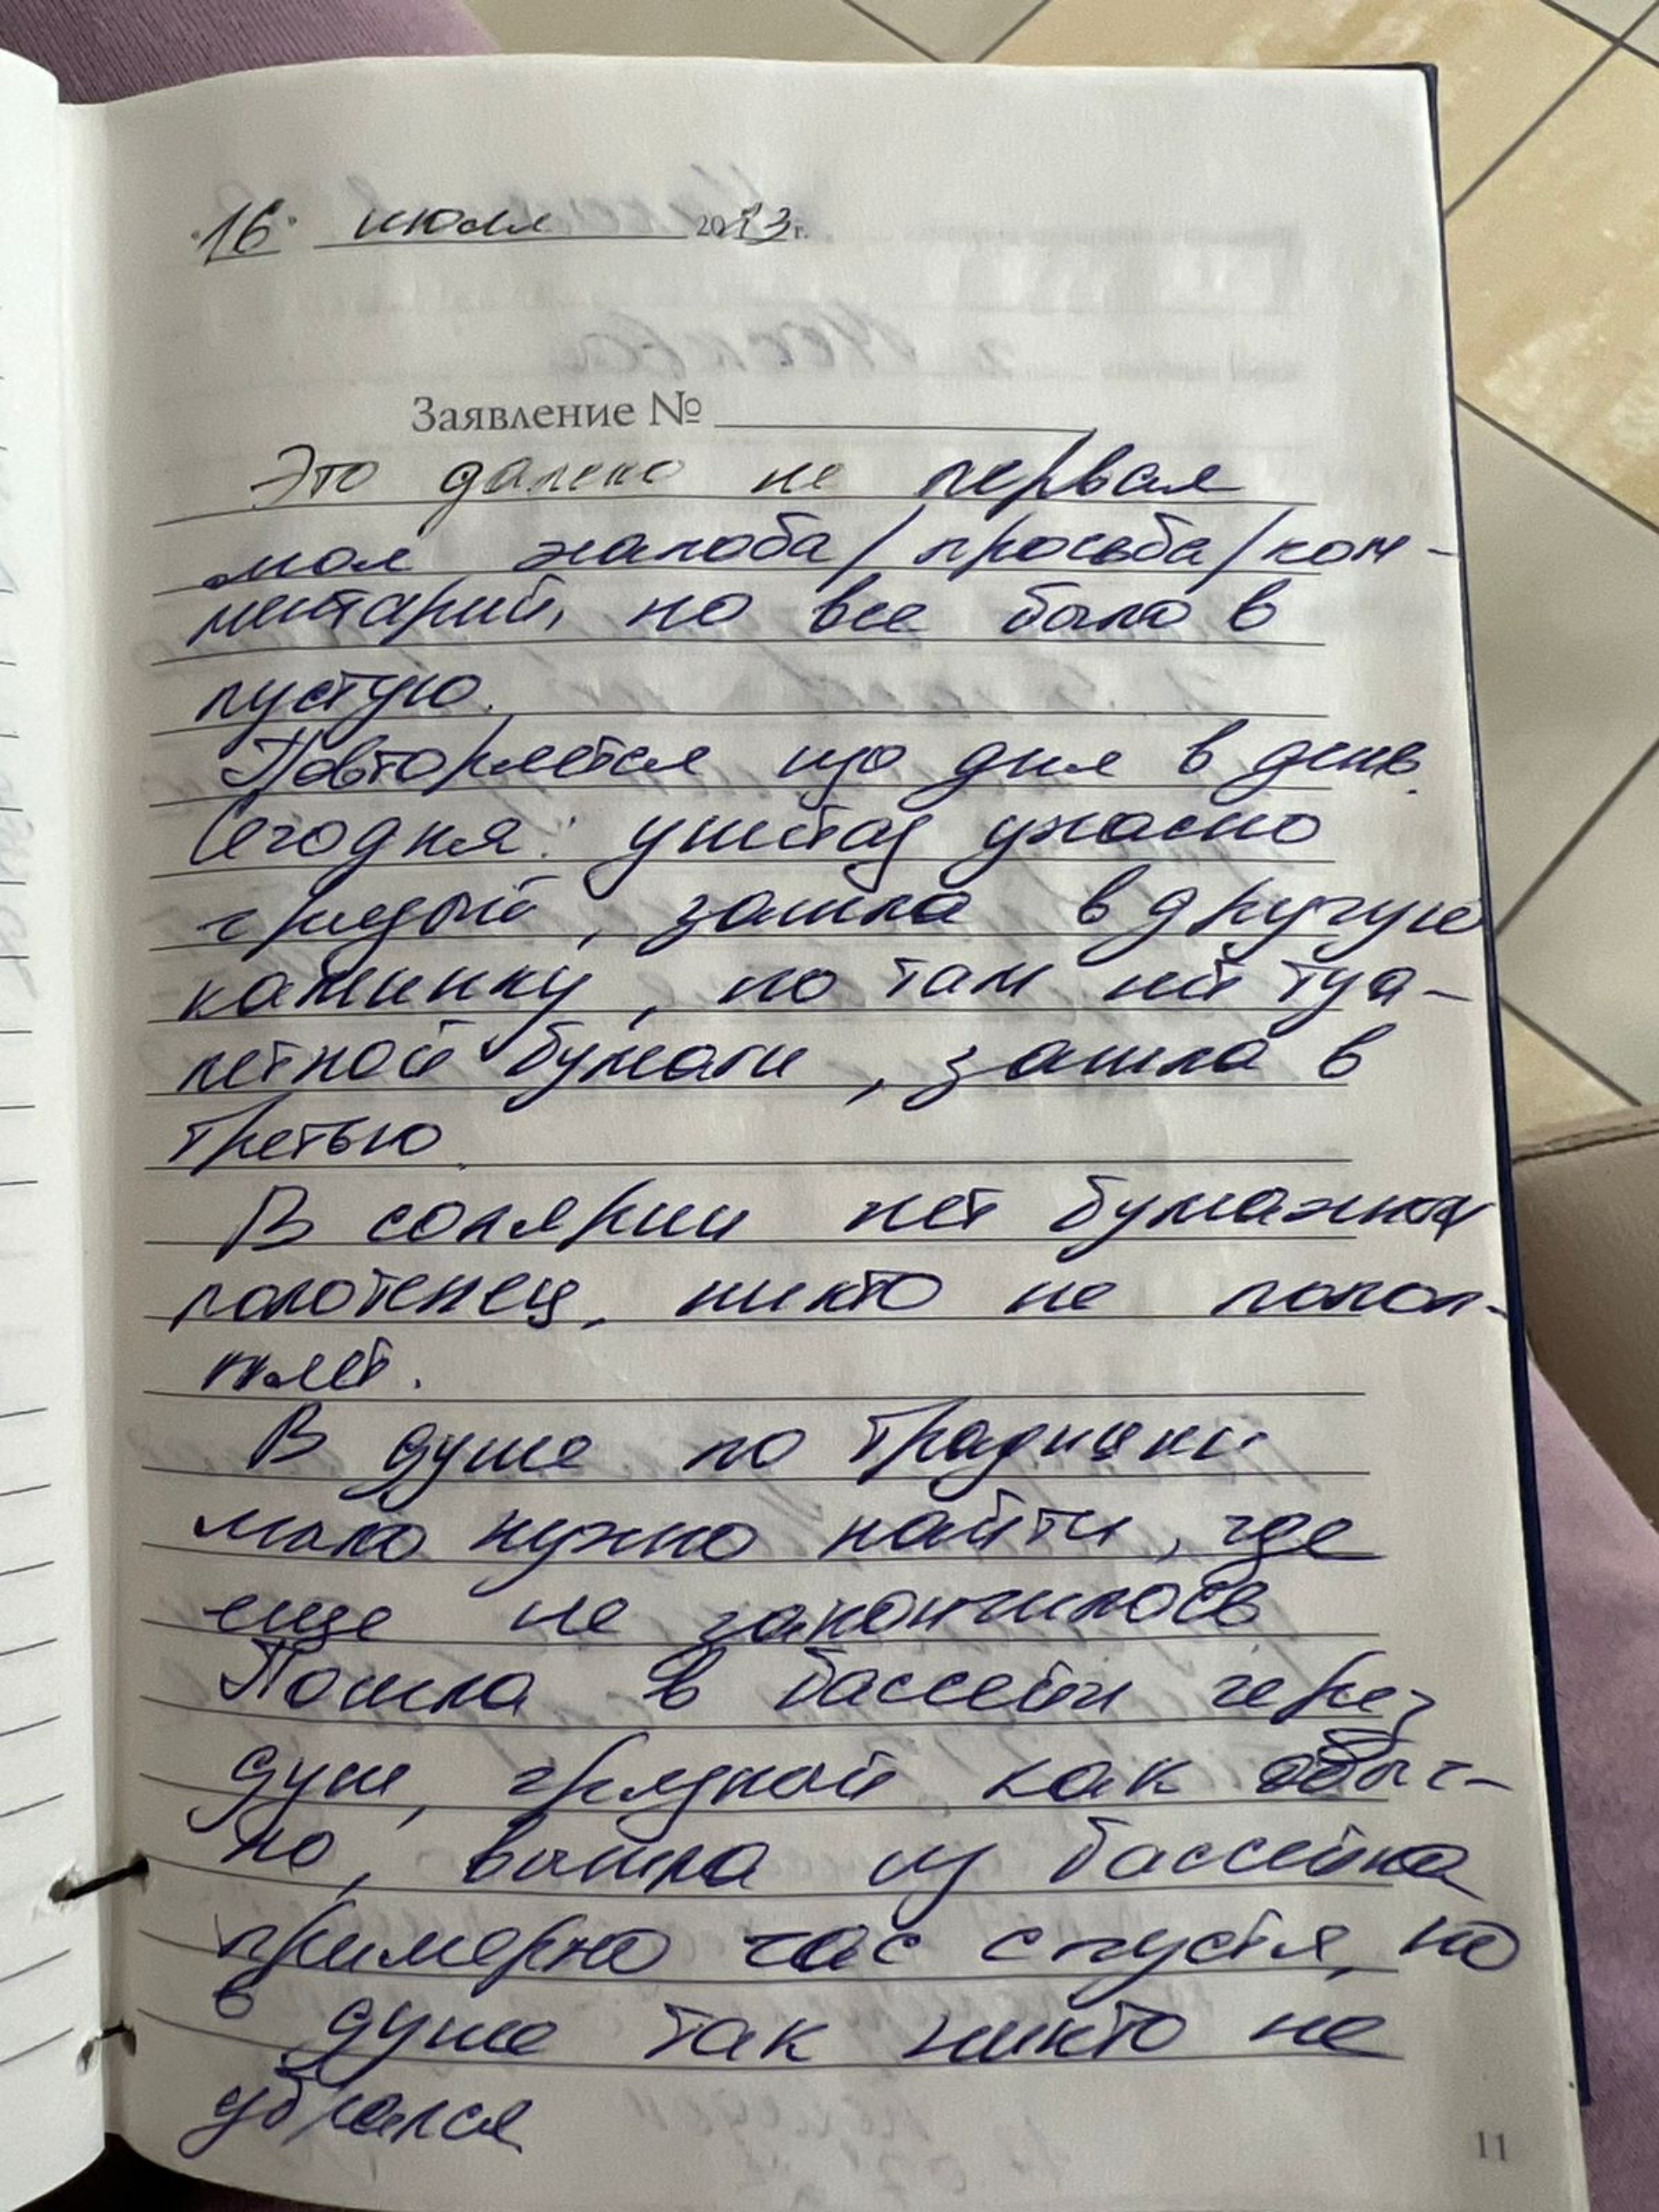 "16" июля 2023г.
Заявление №
Это далеко не первая
моя жалоба/просьба/ком-
ментарий, но все было в
пустую.
Повторяется изо дня в день.
Сегодня: унитаз ужасно
грязый, зашла в другую
кабинку, но там нет туа-
летной бумаги, зашла в
третью.
В солярии нет бумажных
полотенец, никто не попол-
няет.
В душе по традиции
мыло нужно найти, где
еще не закончилось
Пошла в бассейн через
душ, грязной как обыч-
но, вышла из бассейна
примерно час спустя, но
в душе так никто не
убрался
11